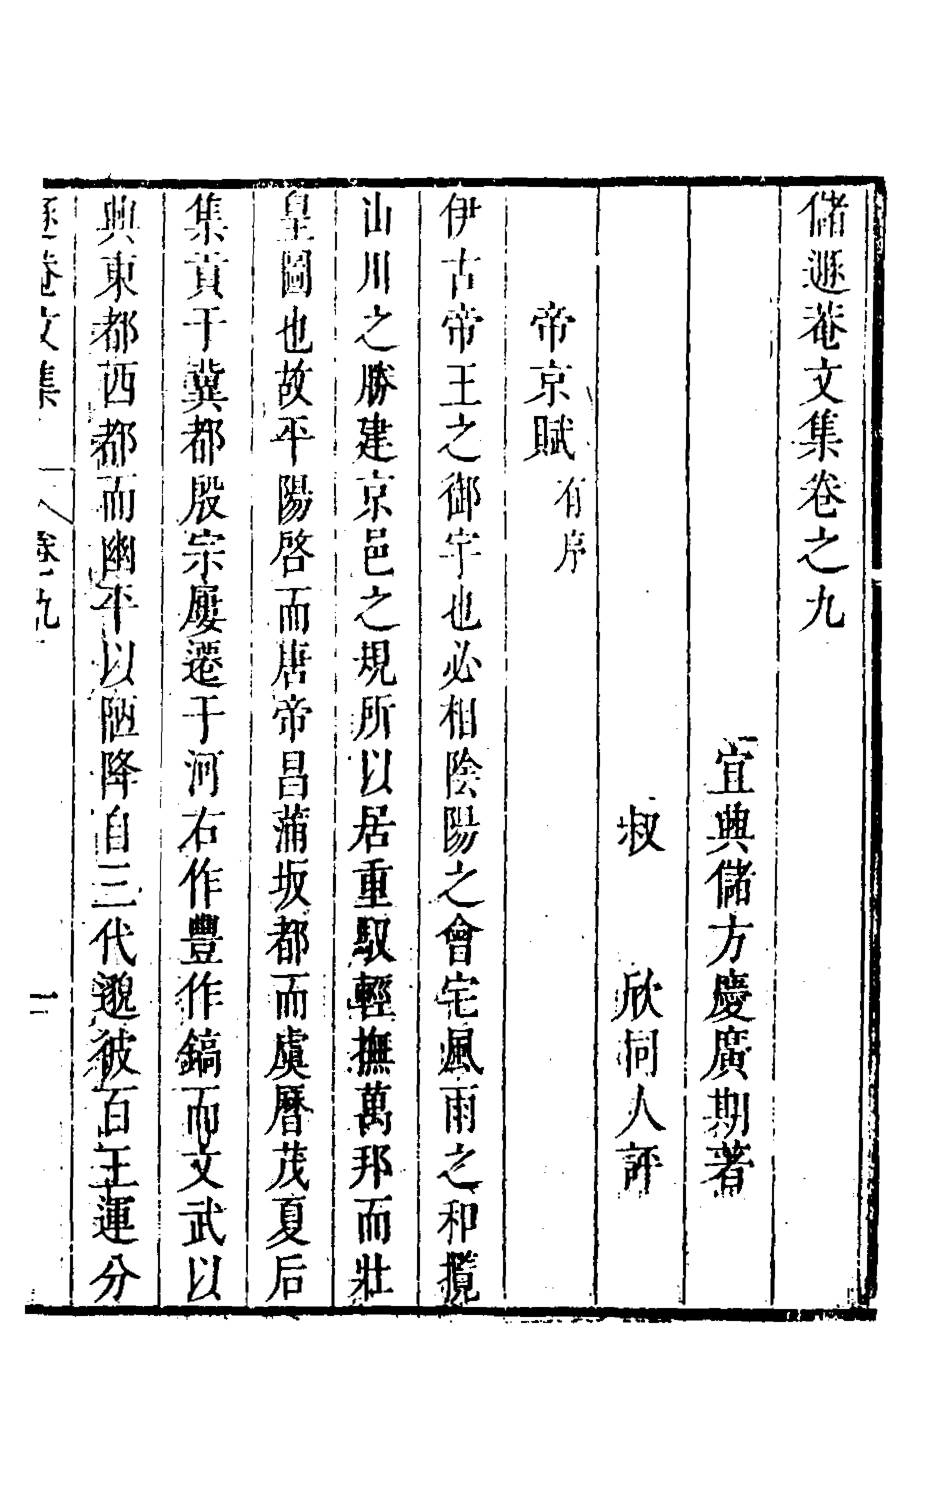 儲遯菴文集卷之九
宜興儲方慶廣期著
叔　欣同人評
帝京賦有序
伊古帝王之御宇也必相陰陽之會宅風雨之和攬
山川之勝建京邑之規所以居重馭輕撫萬邦而壯
皇圖也故平陽啓而唐帝昌蒲坂都而虞曆茂夏后
集貢于冀都殷宗屢遷于河右作豐作鎬而文武以
興東都西都而幽平以陋降自三代邈彼百王運分
遯菴文集　卷九　一